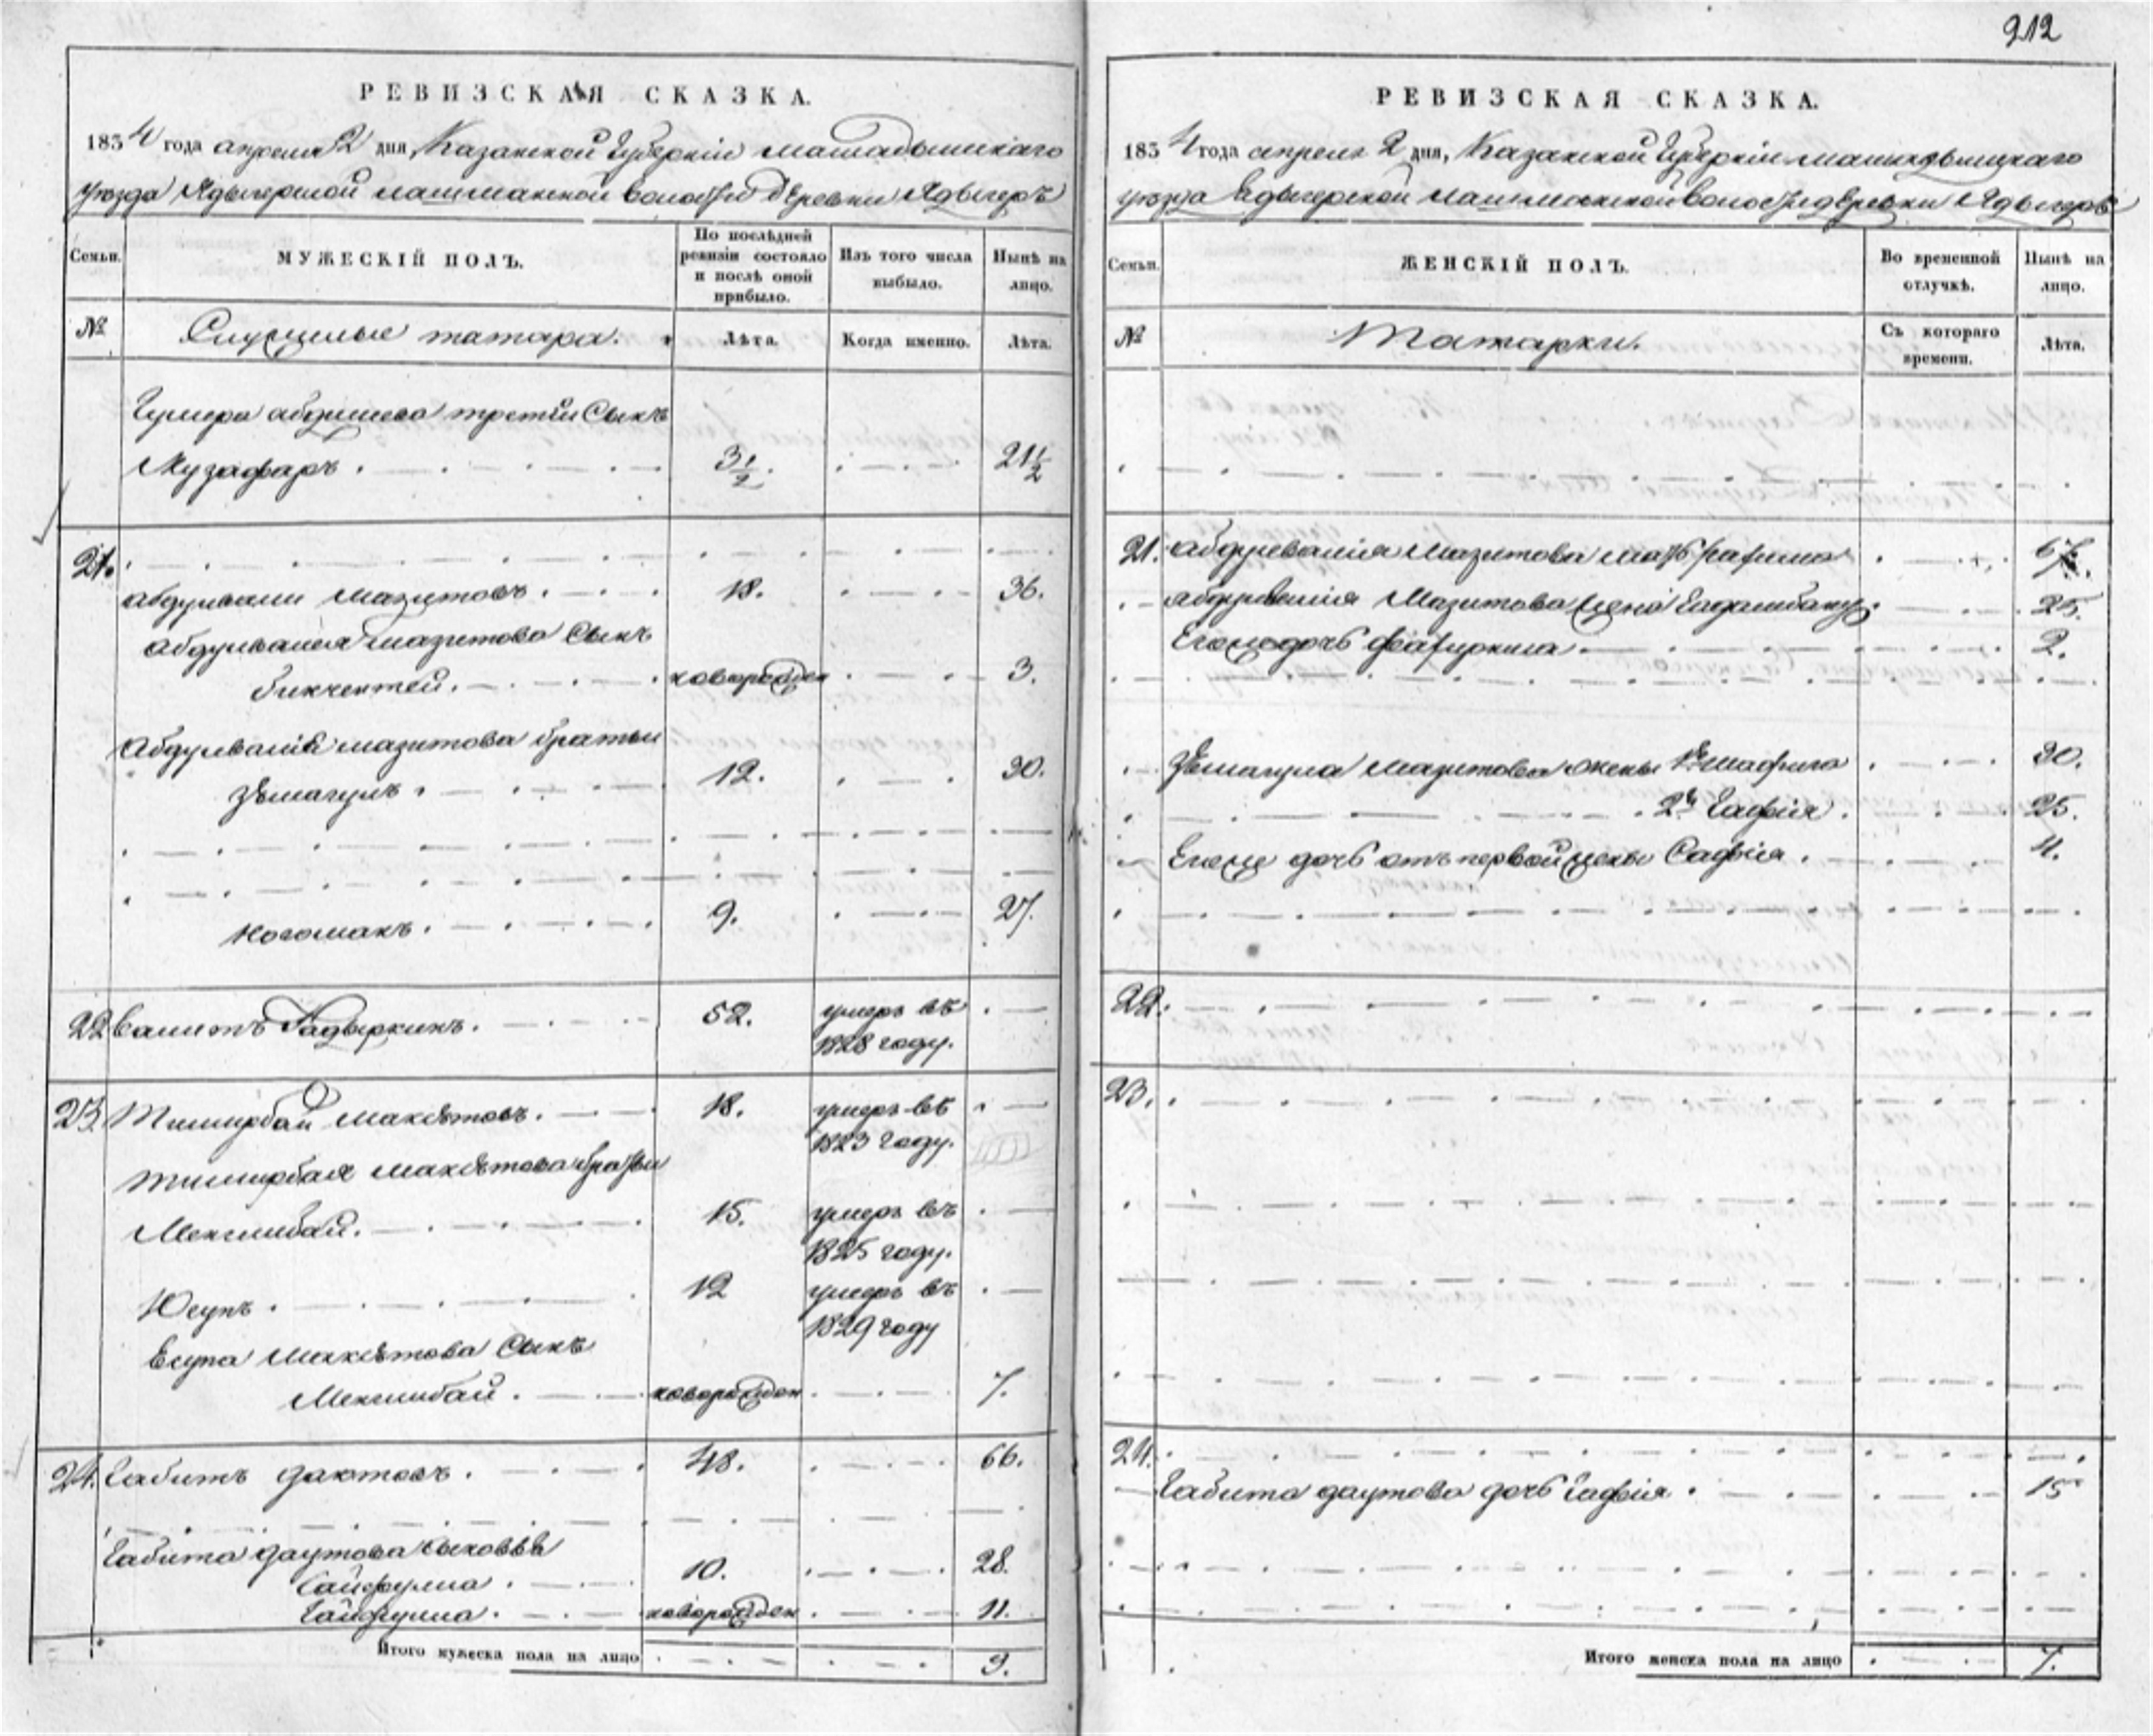 212
РЕВИЗСКАЯ СКАЗКА.
1834 года апреля 2 дня, Казанской Губернiи мамадышскаго
уезда Ядыгерской лашманской волости деревни Ядыгеръ
Семьи.
МУЖЕСКIЙ ПОЛЪ.
По послѣдней ревизiи состояло и послѣ оной прибыло.
Изъ того числа выбыло.
Нынѣ на лицо.
№
Служилые татара.
Лѣта.
Когда именно.
Лѣта.
третiй Сынъ
Музафаръ. 3 1/2. 21 1/2
21.
Мазитовъ. 18. 36.
мазитова Сынъ
бикчентей. новорожден 3.
мазитова братьи
Зѣмагулъ. 12. 30.
Ногоманъ. 9. 27.
22 Валитъ 52. умеръ въ
1828 году.
23. Тимирбай Максютовъ. 18. умеръ въ
1823 году.
Тимирбая максютова братьи
Менглибай. 15. умеръ въ
1825 году.
Юсупъ. 12 умеръ въ
1829 году
Максютова Сынъ
Менглибай. новорожден 7.
24. Габитъ даютовъ. 48. 66.
Габита даутова сыновья
Сайфулла. 10. 28.
Гайфулла. новорожден 11.
Итого мужеска пола на лицо 9.
РЕВИЗСКАЯ СКАЗКА.
1834 года апреля 2 дня, Казанской Губернiи мамадышскаго
уезда Ядыгерской лашманской волости деревни Ядыгеръ
Семьи.
ЖЕНСКIЙ ПОЛЪ.
Во временной отлучкѣ.
Нынѣ на лицо.
№
Татарки.
Съ котораго времени.
Лѣта.
21. Мазитова мать 67.
Мазитова жена 25.
Егоже дочь 2.
Зѣмагула Мазитова жены 1я 30.
2я Гафiя. 25.
Егоже дочь отъ первой жены Сафiя. 4.
22.
23.
24.
Габита даутова дочь Гафiя. 15
Итого женска пола на лицо 7.